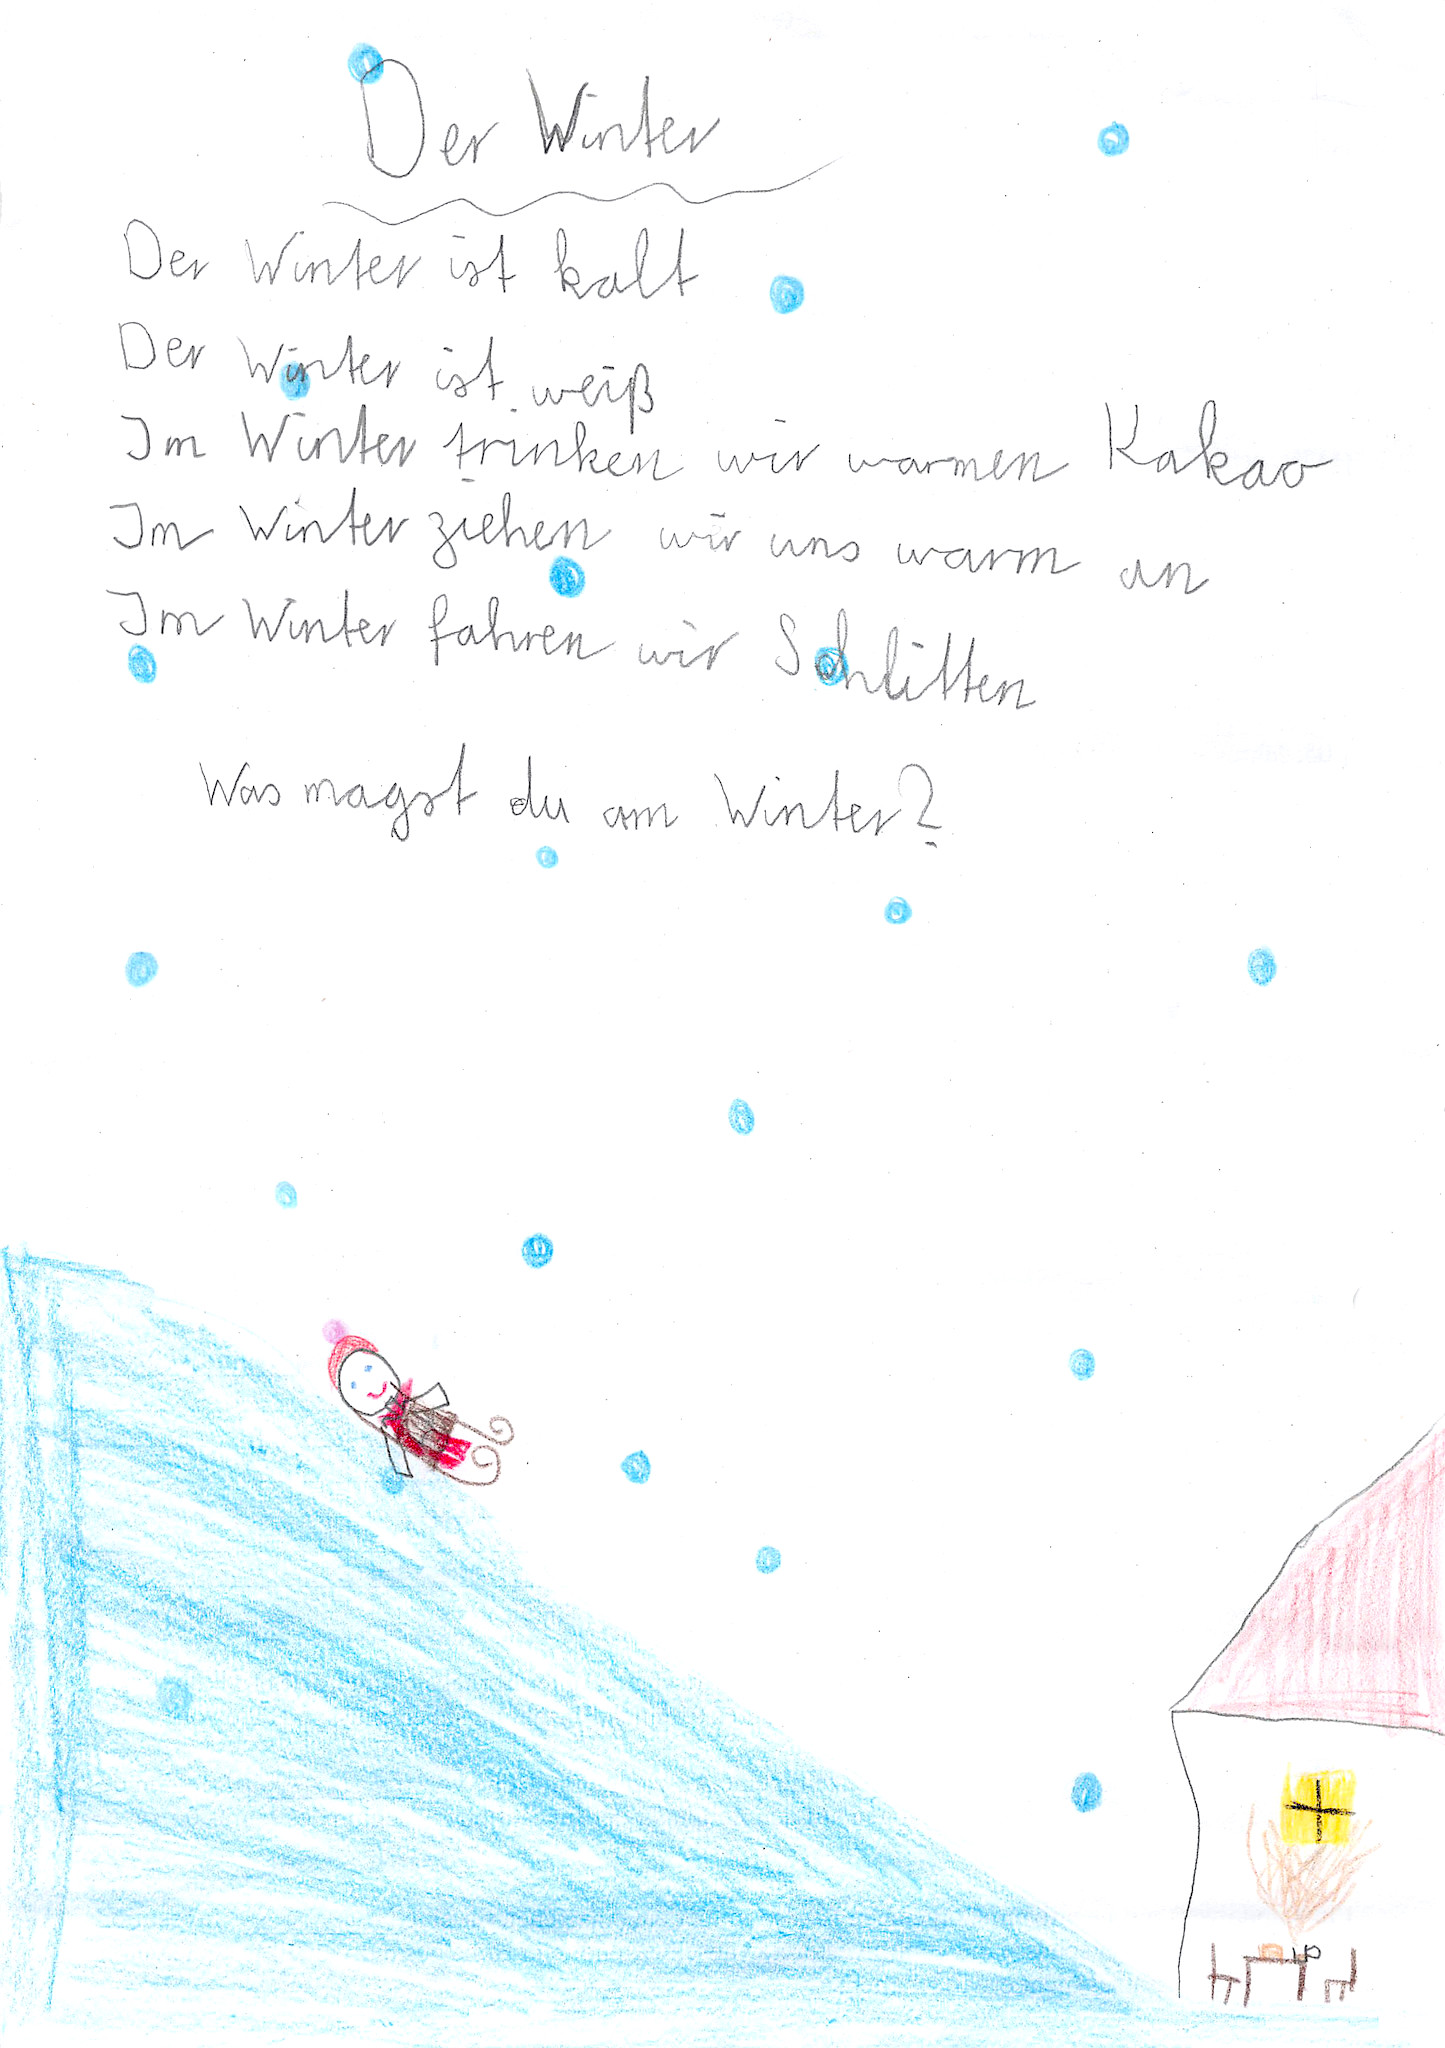 Der Winter
Der Winter ist kalt
Der Winter ist weiß
Im Winter trinken wir warmen Kakao
Im Winter ziehen wir uns warm an
Im Winter fahren wir Schlitten
Was magst du am Winter?